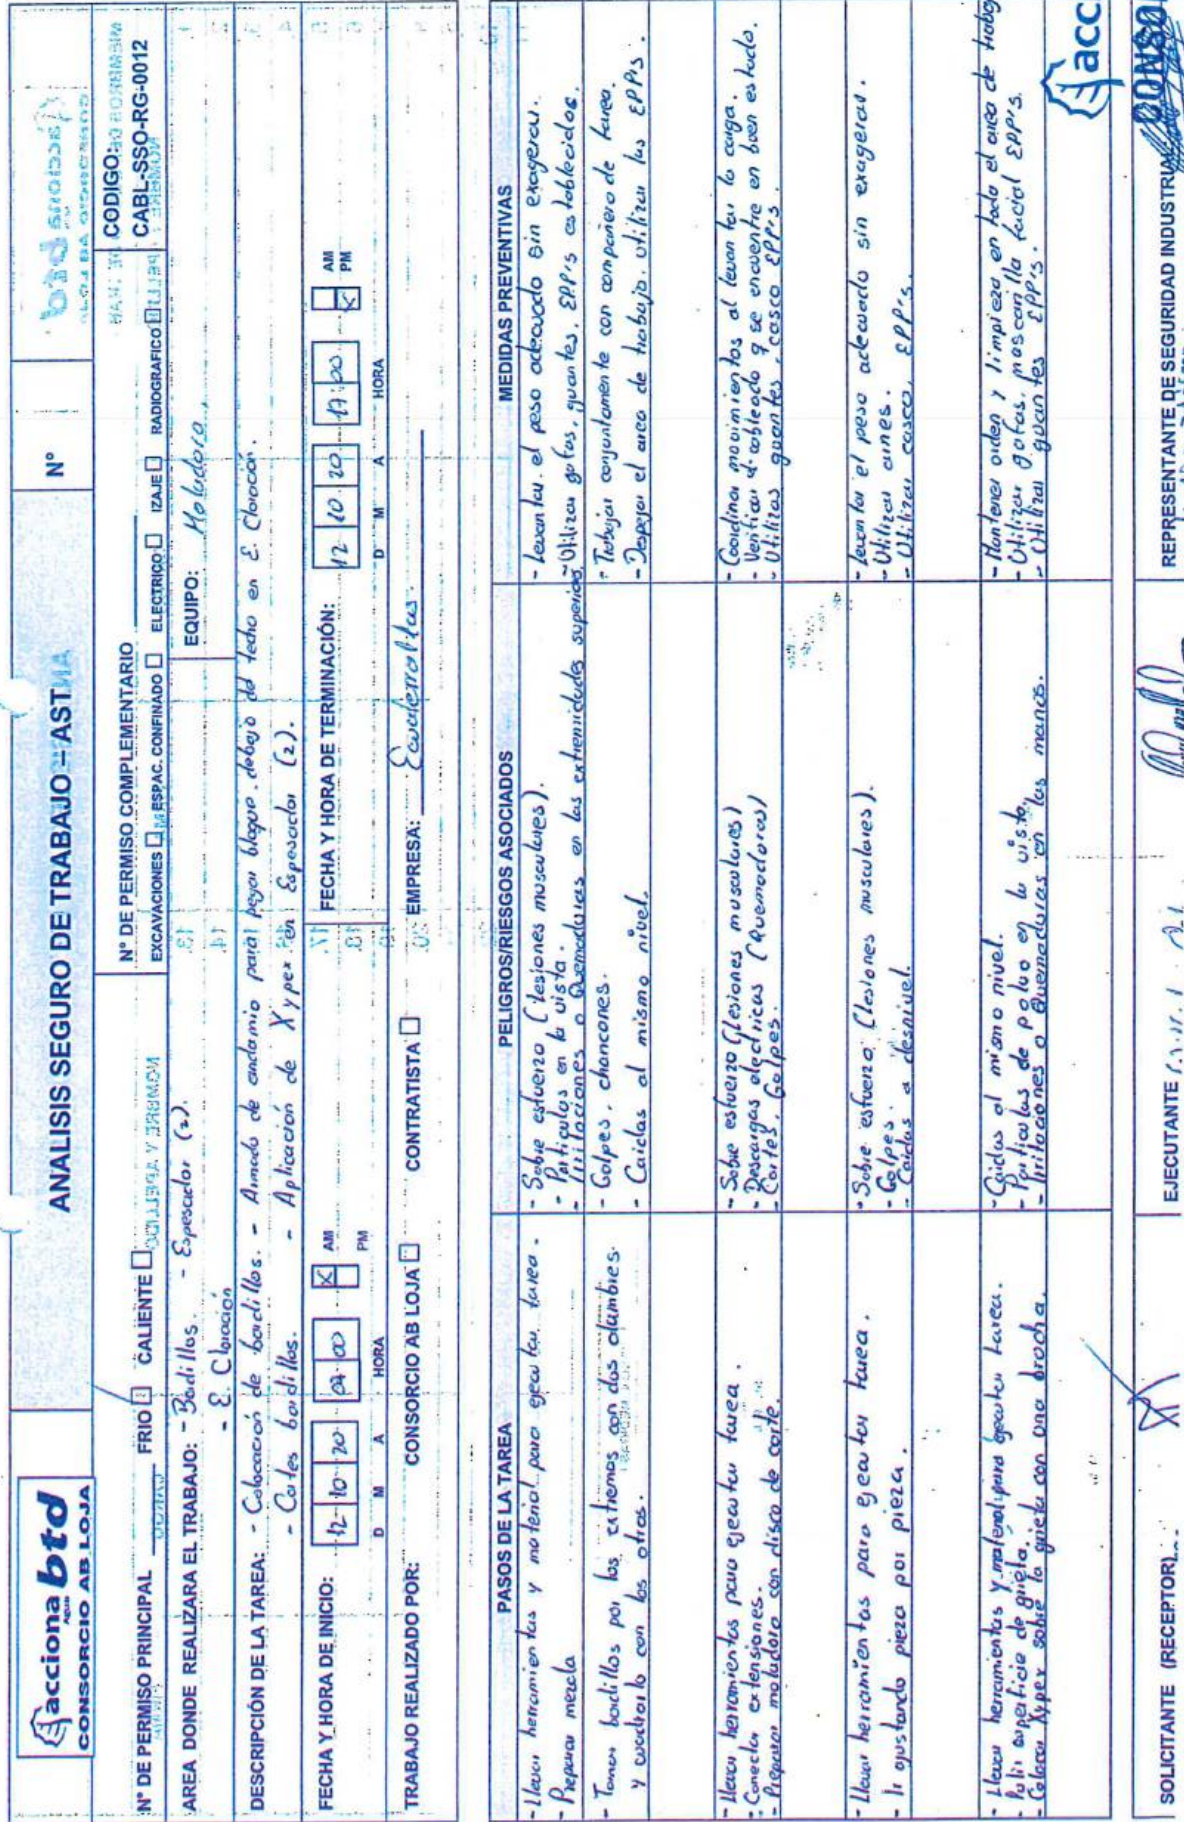 acciona btd
AGUA
CONSORCIO AB LOJA
ANALISIS SEGURO DE TRABAJO – AST
N°
N° DE PERMISO PRINCIPAL
FRIO
CALIENTE
N° DE PERMISO COMPLEMENTARIO
EXCAVACIONES ESPAC. CONFINADO ELECTRICO IZAJE RADIOGRAFICO
CODIGO:
CABL-SSO-RG-0012
AREA DONDE REALIZARA EL TRABAJO: - Bordillos. - Espesador (2).
- E. Cloración
EQUIPO: Moladora
DESCRIPCIÓN DE LA TAREA: - Colocación de bordillos. - Armado de andamio para pegar bloque debajo de techo en E. Cloracion.
- Cortes bordillos. - Aplicación de Xypex en Espesador (2).
FECHA Y HORA DE INICIO: 12 10 20 07:00 X AM
PM
D M A HORA
FECHA Y HORA DE TERMINACIÓN: 12 10 20 17:00 AM
X PM
D M A HORA
TRABAJO REALIZADO POR: CONSORCIO AB LOJA CONTRATISTA EMPRESA:
PASOS DE LA TAREA
PELIGROS/RIESGOS ASOCIADOS
MEDIDAS PREVENTIVAS
- Llevar herramientas y material para ejecutar tarea.
- Preparar mezcla
- Sobre esfuerzo (lesiones musculares).
- Particulas en la vista.
- Irritaciones o Quemaduras en las extremidades superiores
- Levantar el peso adecuado sin exagerar.
- Utilizar gafas, guantes, EPP's establecidos.
- Tomar bordillos por los extremos con dos alambres
y cuadrarlo con los otros.
- Golpes, chancones.
- Caidas al mismo nivel.
- Trabajar conjuntamente con compañero de tarea.
- Despejar el area de trabajo. utilizar los EPP's.
- Llevar herramientas para ejecutar tarea.
- Conectar extensiones.
- Preparar moladora con disco de corte.
- Sobre esfuerzo (lesiones musculares)
- Descargas electricas (Quemaduras)
- Cortes, Golpes.
- Coordinar movimientos al levantar la carga.
- Verificar el cableado q se encuentre en buen estado.
- Utilizar guantes, casco EPP's
- Llevar herramientas para ejecutar tarea.
- Ir ajustando pieza por pieza
- Sobre esfuerzo (lesiones musculares).
- Golpes.
- Caidas a desnivel.
- Levantar el peso adecuado sin exagerar.
- Utilizar arnes.
- Utilizar casco, EPP's
- Llevar herramientas y material para ejecutar tarea.
- Pulir superficie de grieta.
- Colocar Xypex sobre la grieta con una brocha.
- Caidas al mismo nivel.
- Particulas de polvo en la vista
- Irritaciones o Quemaduras en las manos.
- Mantener orden y limpieza en todo el area de trabajo
- Utilizar gafas, mascarilla facial EPP's.
- Utilizar guantes EPP's.
acc
SOLICITANTE (RECEPTOR)
EJECUTANTE
REPRESENTANTE DE SEGURIDAD INDUSTRIAL